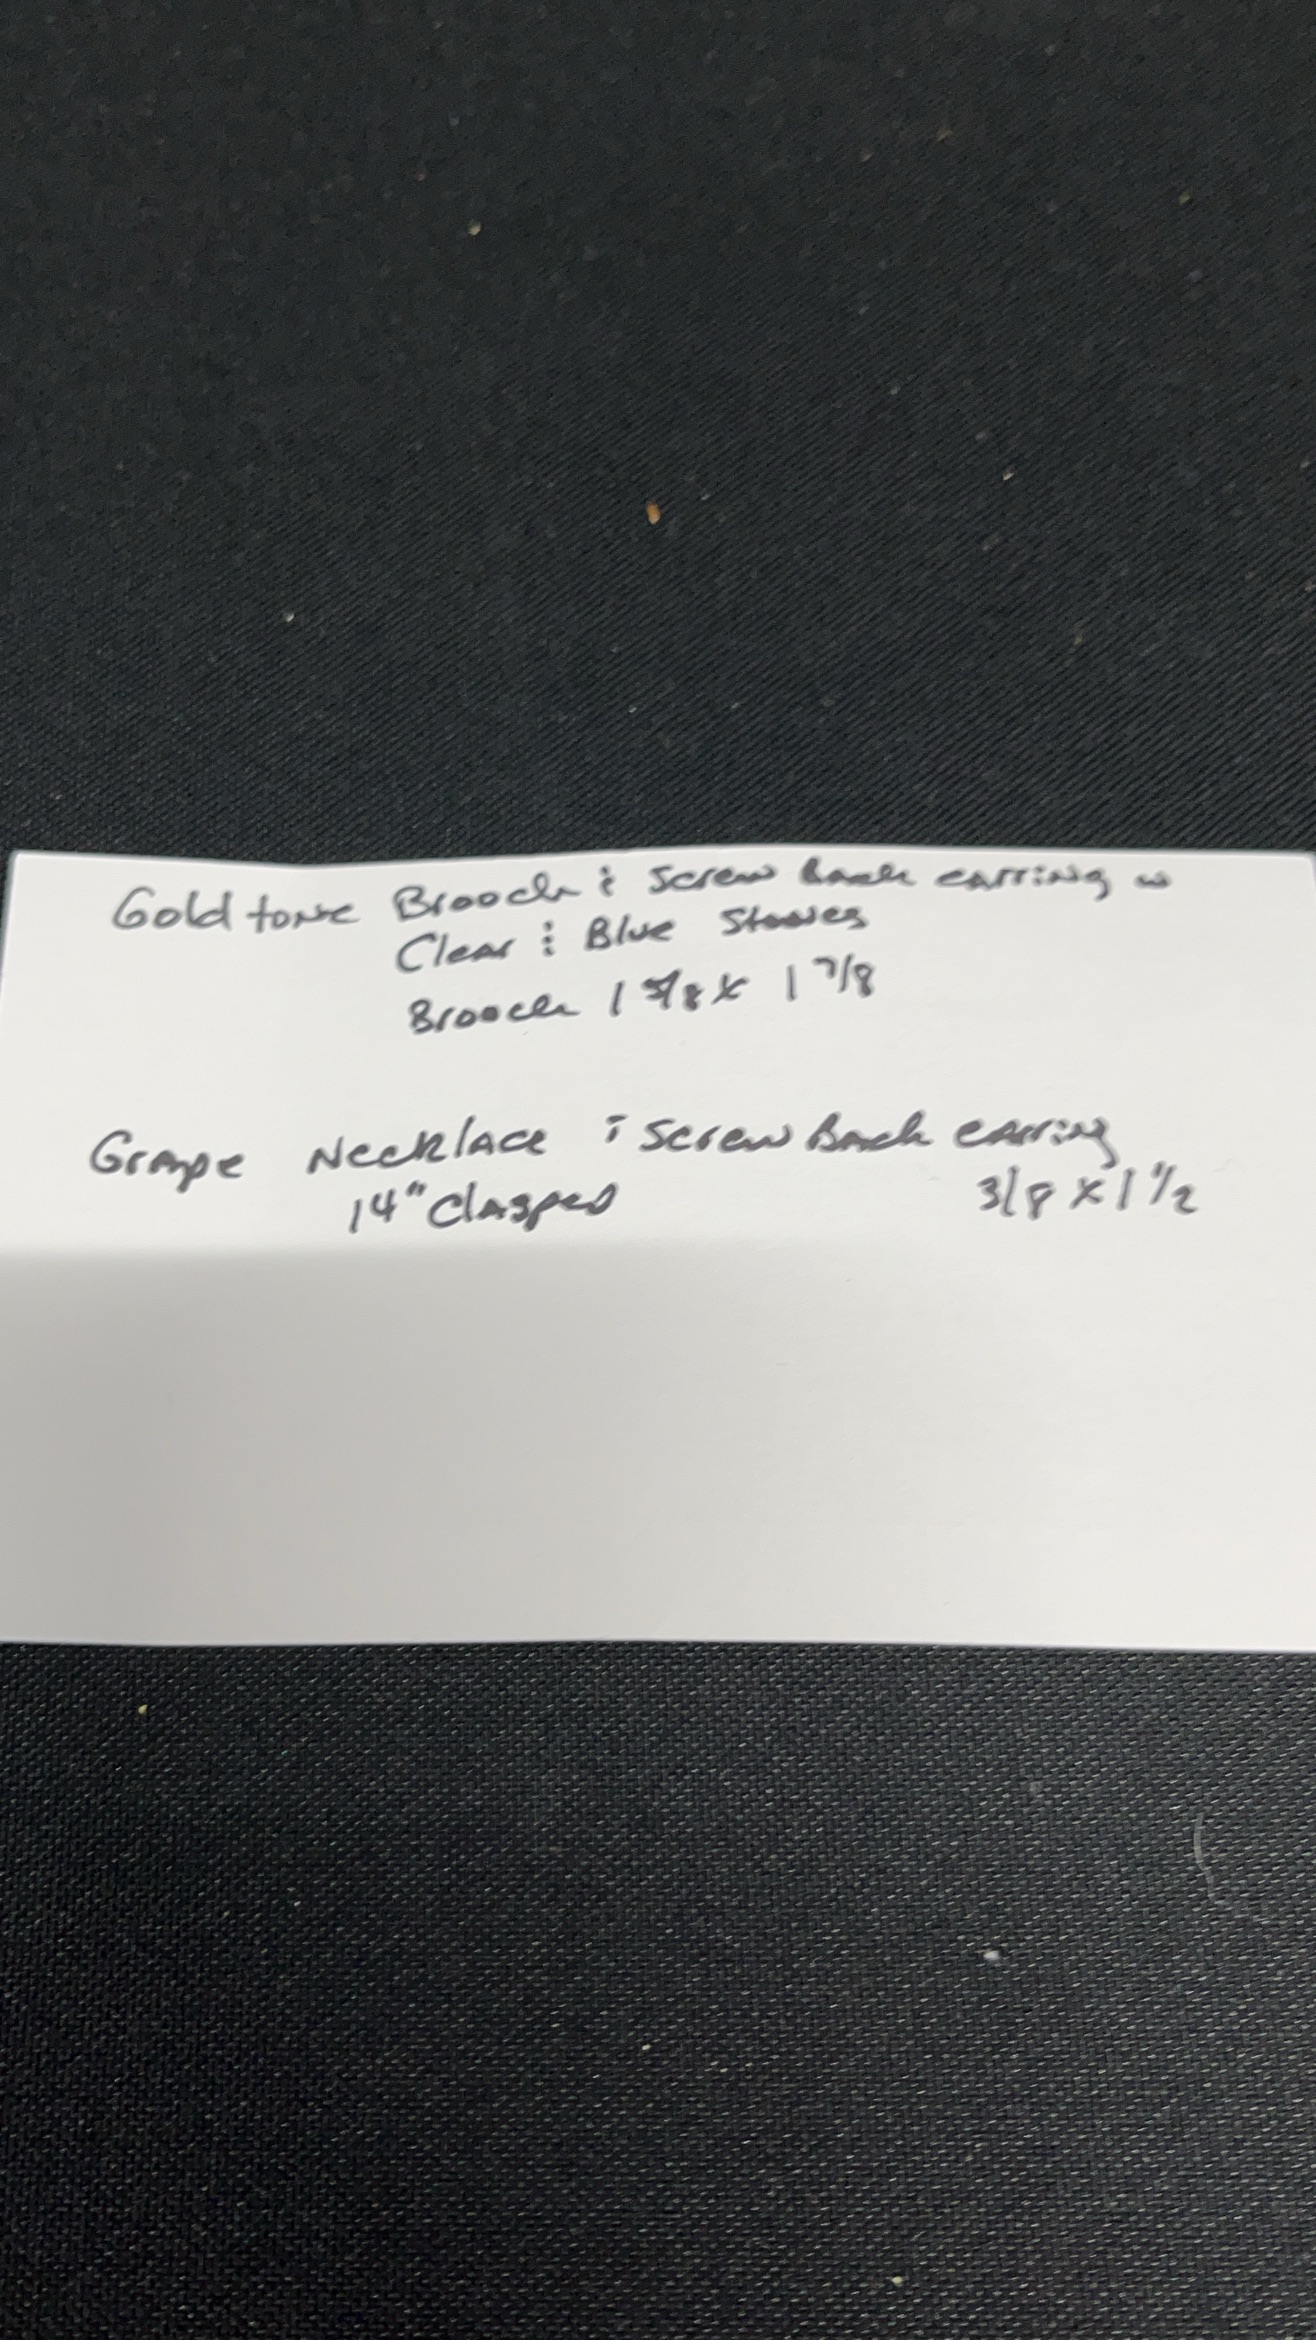 Gold tone Brooch & Screw back earring w
Clear & Blue Stones
Brooch 1 5/8 x 1 7/8
Grape Necklace & Screw Back earring
14" Clasped 3/8 x 1 1/2